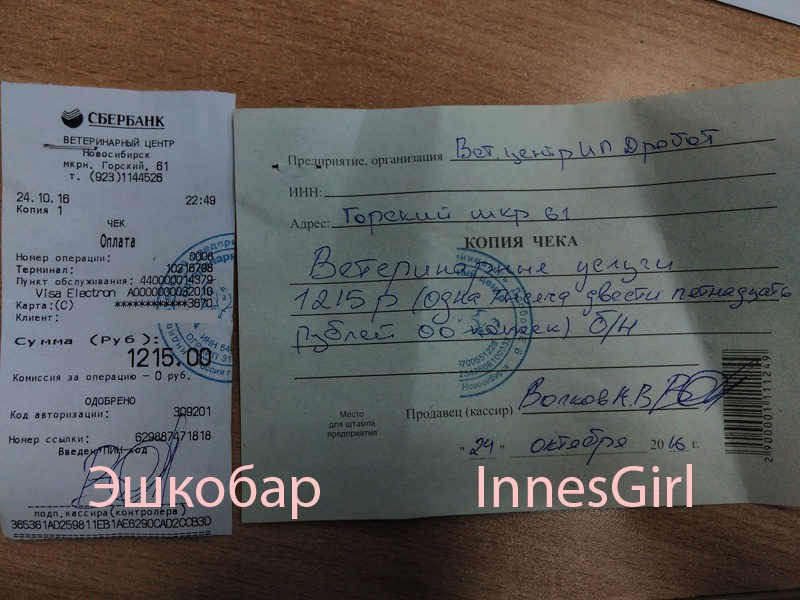 СБЕРБАНК
ВЕТЕРИНАРНЫЙ ЦЕНТР
Новосибирск
мкрн. Горский, 61
т. (923)1144526
24.10.16 22:49
Копия 1
ЧЕК
Оплата
Номер операции: 0008
Терминал: 10216798
Пункт обслуживания: 440000014379
Visa Electron A0000000032010
Карта:(С) ************3670
Клиент:
Сумма (Руб):
1215.00
Комиссия за операцию – 0 руб.
ОДОБРЕНО
Код авторизации: 309201
Номер ссылки: 629887471818
Введен ПИН-код
подп.кассира(контролера)
365361AD259811EB1AE6290CAD2CCB3D
Предприятие, организация Вет. центр ИП Дробот
ИНН:
Адрес: Горский мкр 61
КОПИЯ ЧЕКА
Ветеринарные услуги
1215 р (одна тысяча двести пятнадцать
рублей 00 копеек) б/н
Место
для штампа
предприятия
Продавец (кассир) Волков К.В
"24" октября 2016 г.
2900001111249
Эшкобар
InnesGirl